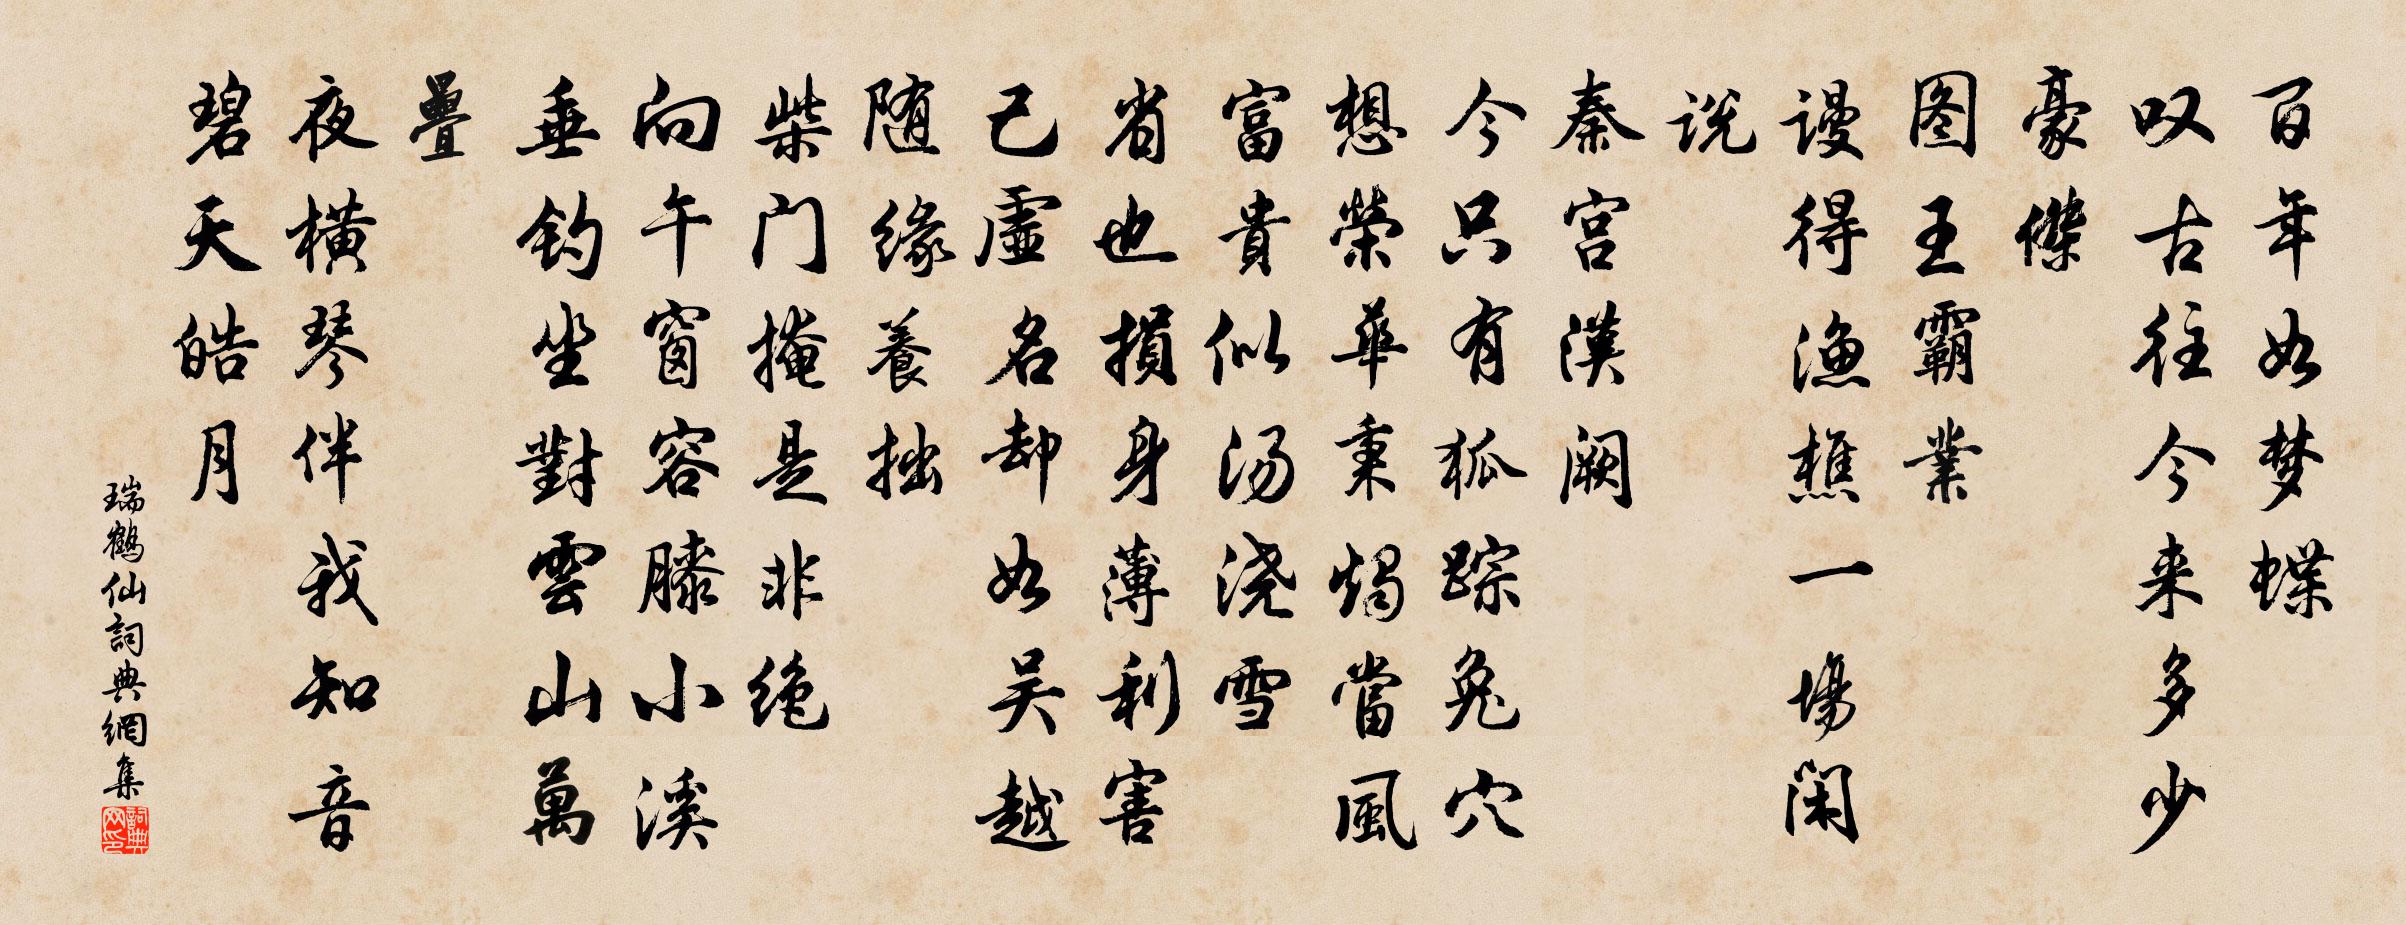 百年如梦蝶
叹古往今来多少
豪傑
图王霸業
谩得渔樵一場闲
说
秦宫漢阙
今只有狐踪兔穴
想榮華秉燭當風
富貴似汤浇雪
省也損身薄利害
己虛名却如吴越
随缘養拙
柴门掩是非绝
向午窗容膝小溪
垂钓坐對雲山萬
疊
夜橫琴伴我知音
碧天皓月
瑞鶴仙詞典網集
詞典网印